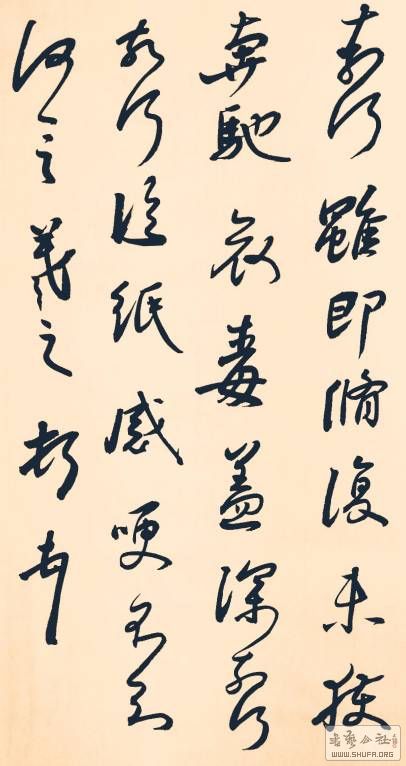 奈何雖即脩復未獲
奔馳哀毒益深奈何
奈何臨紙感哽不知
何言羲之頓首
WWW.SHUFA.ORG